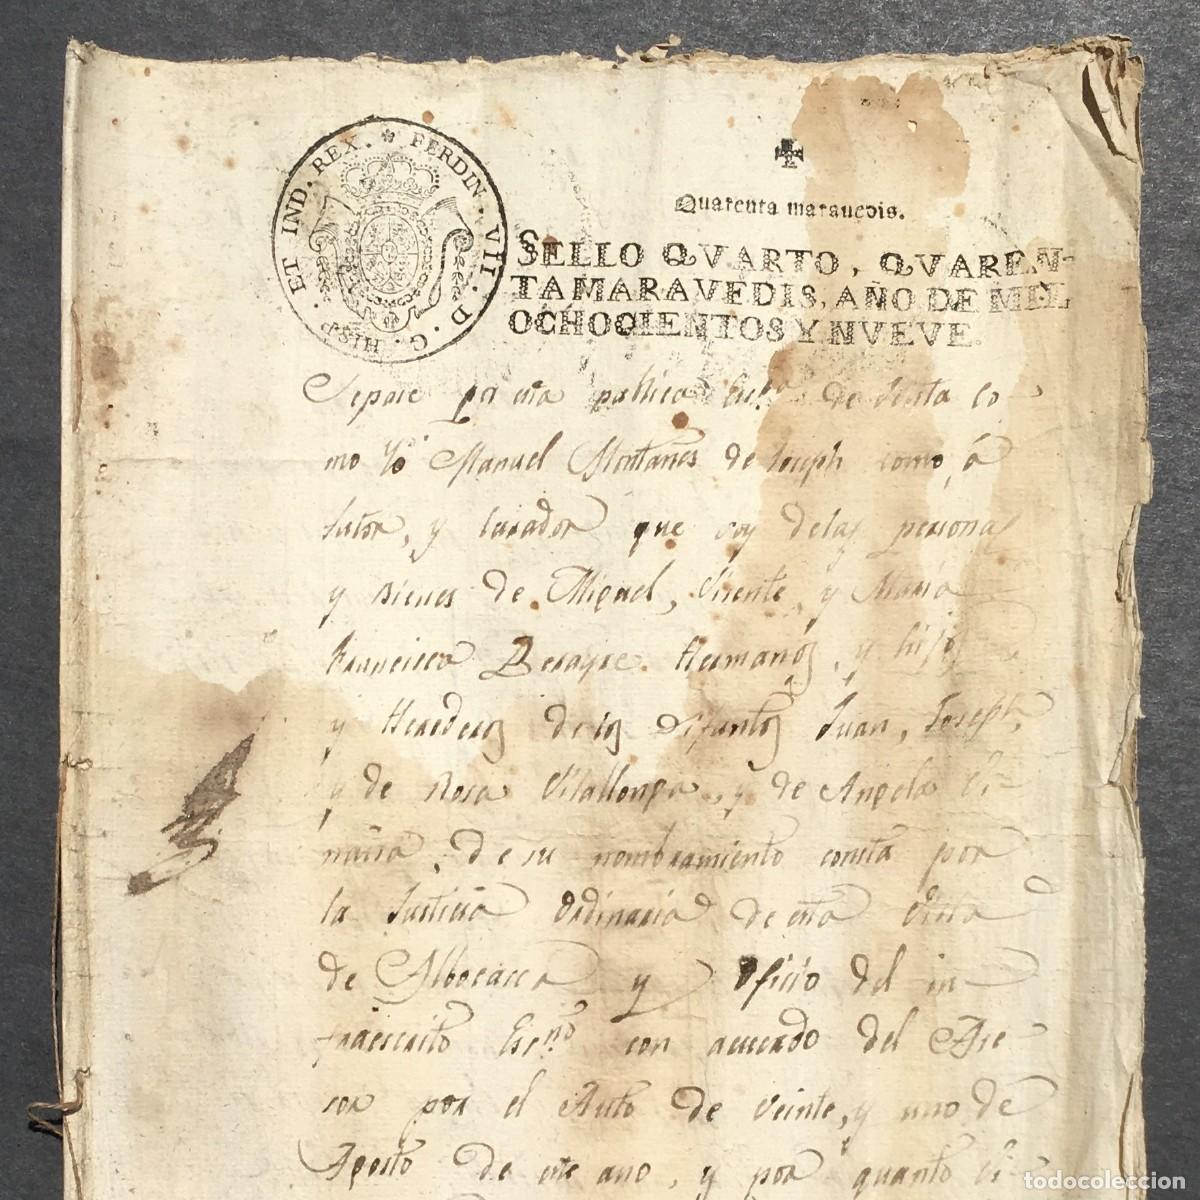 FERDIN · VII · D · G · HISP · ET IND · REX ·
Quarenta maravedis.
SELLO QVARTO, QVAREN-
TA MARAVEDIS, AÑO DE MIL
OCHOCIENTOS Y NVEVE.
Sepase por esta publica de Venta co-
mo Yo Manuel Montañes de Joseph como á
tutor, y Curador que soy de las personas
y Bienes de Miguel, Vicente, y Maria
Francisca Hermanos, y hijos
y Herederos de los Difuntos Juan, Joseph,
y de Rosa Vilallonga, y de Angela Vi-
ñana, de su nombramiento consta por
la Justicia Ordinaria de esta Villa
de Albocácer y Oficio del in-
fraescrito Esc.no con acuerdo del Ase-
sor por el Auto de Veinte, y uno de
Agosto de este ano, y por quanto
todocoleccion